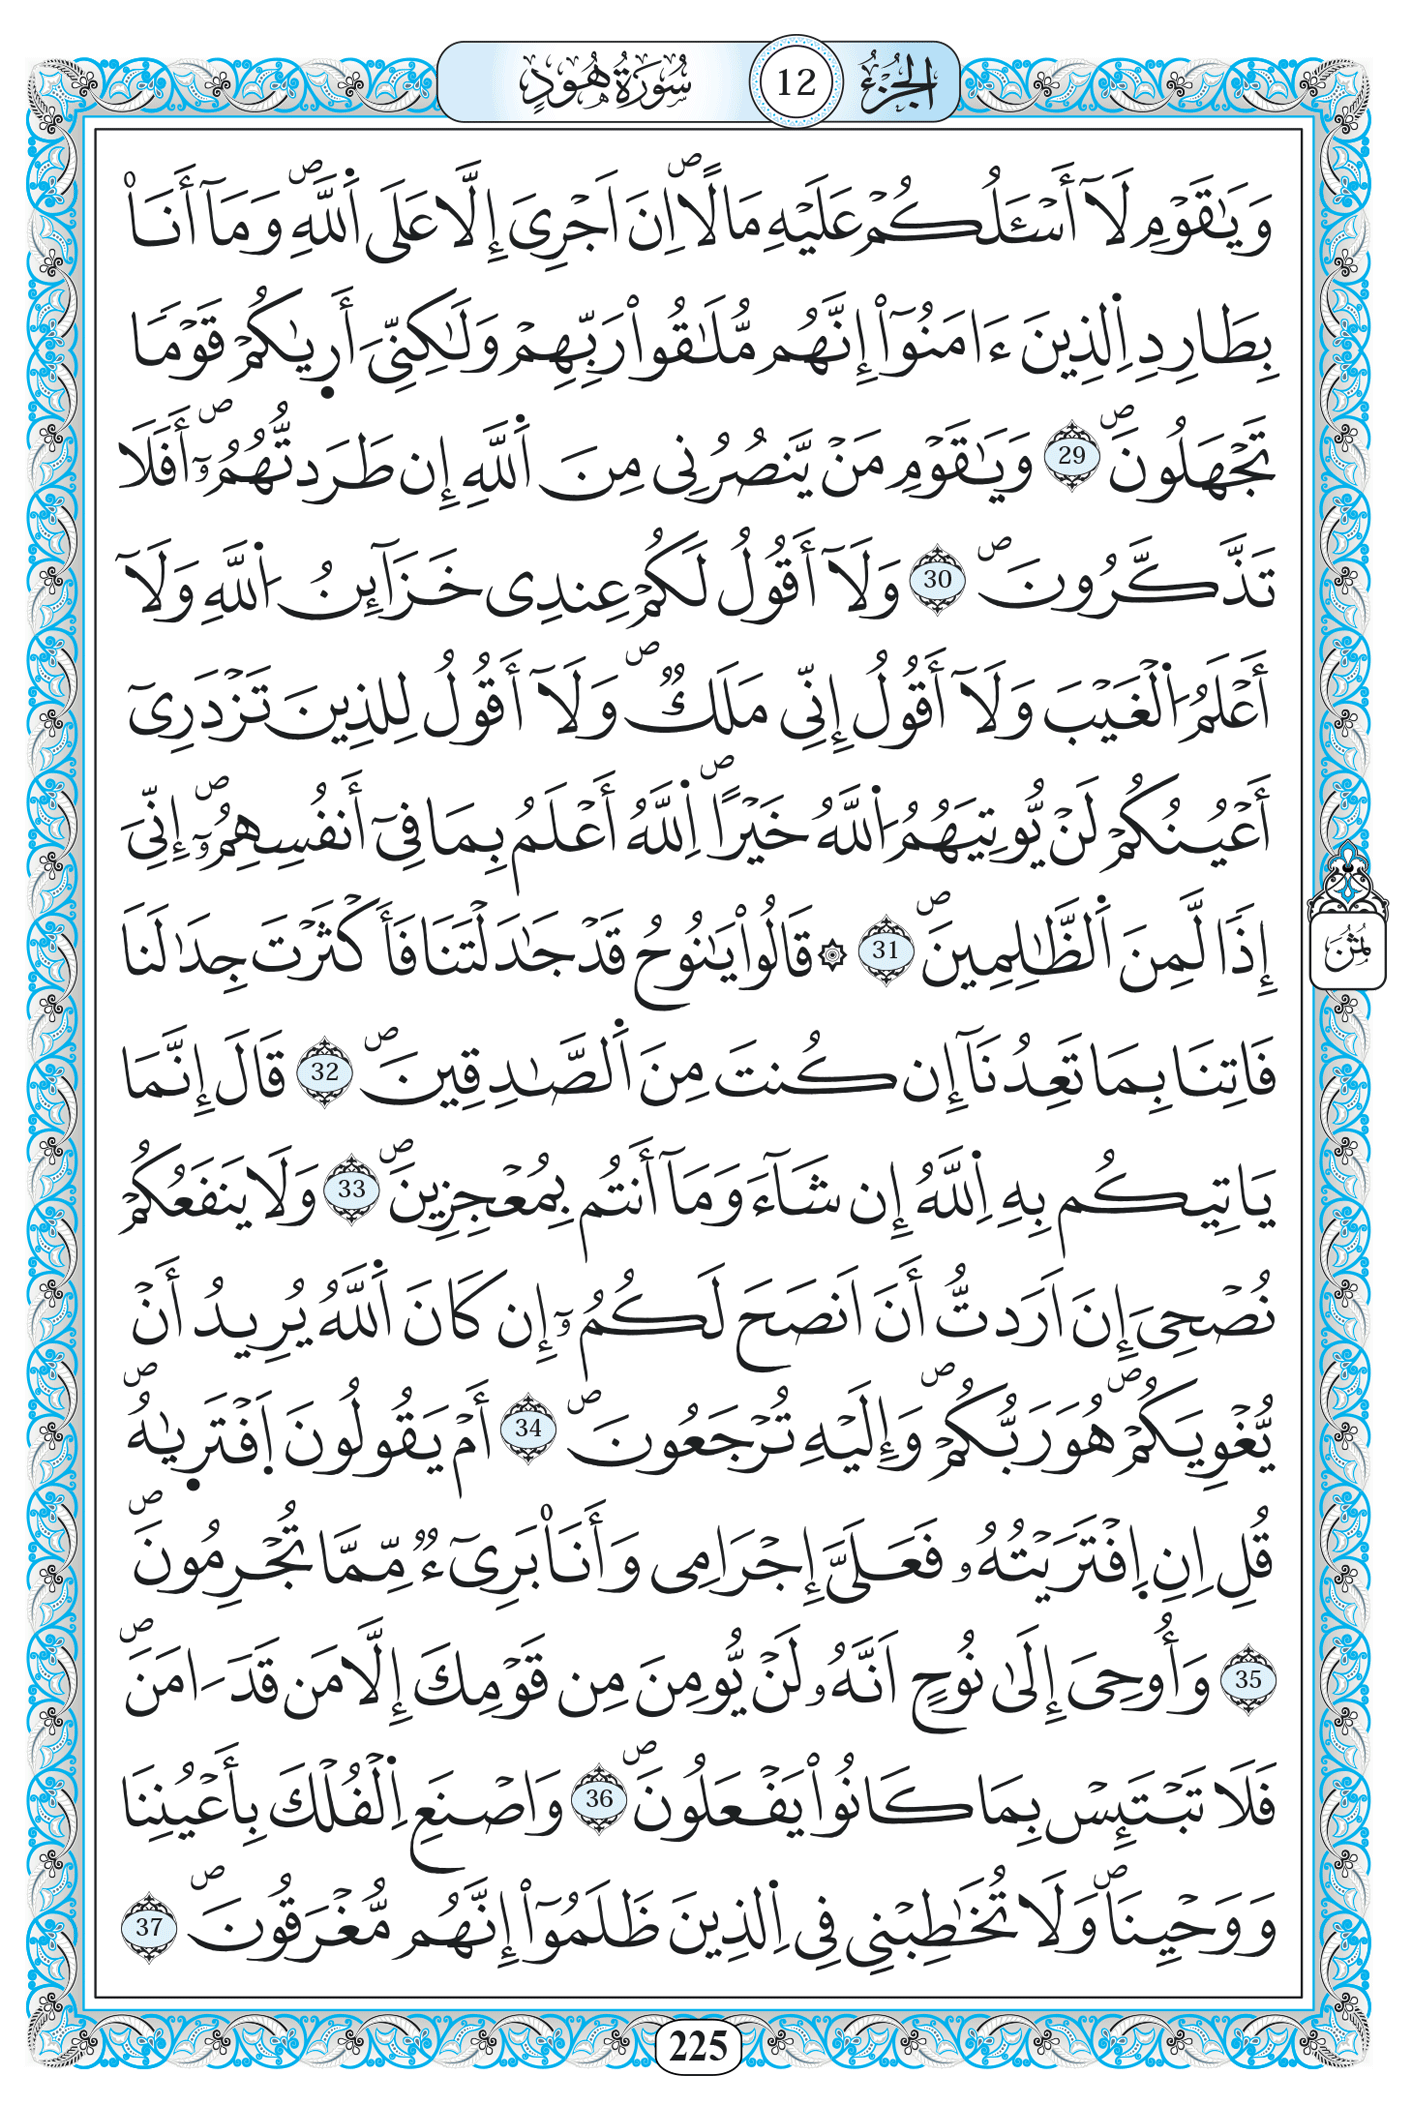 الجزء 12 سورة هود
وَيَٰقَوْمِ لَآ أَسْـَٔلُكُمْ عَلَيْهِ مَالًاۖ اِنَ اَجْرِيَ إِلَّا عَلَى اَ۬للَّهِۖ وَمَآ أَنَا۠
بِطَارِدِ اِ۬لذِينَ ءَامَنُوٓاْۖ إِنَّهُم مُّلَٰقُواْ رَبِّهِمْ وَلَٰكِنِّيَ أَر۪يٰكُمْ قَوْماٗ
تَجْهَلُونَۖ 29 وَيَٰقَوْمِ مَنْ يَّنصُرُنِي مِنَ اَ۬للَّهِ إِن طَرَدتُّهُمُۥٓۖ أَفَلَا
تَذَّكَّرُونَۖ 30 وَلَآ أَقُولُ لَكُمْ عِندِي خَزَآئِنُ اُ۬للَّهِ وَلَآ
أَعْلَمُ اُ۬لْغَيْبَ وَلَآ أَقُولُ إِنِّي مَلَكٞۖ وَلَآ أَقُولُ لِلذِينَ تَزْدَرِيٓ
أَعْيُنُكُمْ لَنْ يُّوتِيَهُمُ اُ۬للَّهُ خَيْراًۖ اِ۬للَّهُ أَعْلَمُ بِمَا فِيٓ أَنفُسِهِمُۥٓۖ إِنِّيَ
إِذاٗ لَّمِنَ اَ۬لظَّٰلِمِينَۖ 31 ۞ قَالُواْ يَٰنُوحُ قَدْ جَٰدَلْتَنَا فَأَكْثَرْتَ جِدَٰلَنَا
فَاتِنَا بِمَا تَعِدُنَآ إِن كُنتَ مِنَ اَ۬لصَّٰدِقِينَۖ 32 قَالَ إِنَّمَا
يَاتِيكُم بِهِ اِ۬للَّهُ إِن شَآءَ وَمَآ أَنتُم بِمُعْجِزِينَۖ 33 وَلَا يَنفَعُكُمْ
نُصْحِيَ إِنَ اَرَدتُّ أَنَ اَنصَحَ لَكُمُۥٓ إِن كَانَ اَ۬للَّهُ يُرِيدُ أَنْ
يُّغْوِيَكُمْۖ هُوَ رَبُّكُمْۖ وَإِلَيْهِ تُرْجَعُونَۖ 34 أَمْ يَقُولُونَ اَ۪فْتَر۪يٰهُۖ
قُلِ اِنِ اِ۪فْتَرَيْتُهُۥ فَعَلَيَّ إِجْرَامِي وَأَنَا۠ بَرِيٓءٞ مِّمَّا تُجْرِمُونَۖ
35 وَأُوحِيَ إِلَىٰ نُوحٍ اَنَّهُۥ لَنْ يُّومِنَ مِن قَوْمِكَ إِلَّا مَن قَدَ اٰمَنَۖ
فَلَا تَبْتَئِسْ بِمَا كَانُواْ يَفْعَلُونَۖ 36 وَاصْنَعِ اِ۬لْفُلْكَ بِأَعْيُنِنَا
وَوَحْيِنَاۖ وَلَا تُخَٰطِبْنِي فِي اِ۬لذِينَ ظَلَمُوٓاْ إِنَّهُم مُّغْرَقُونَۖ 37
ثمن
225